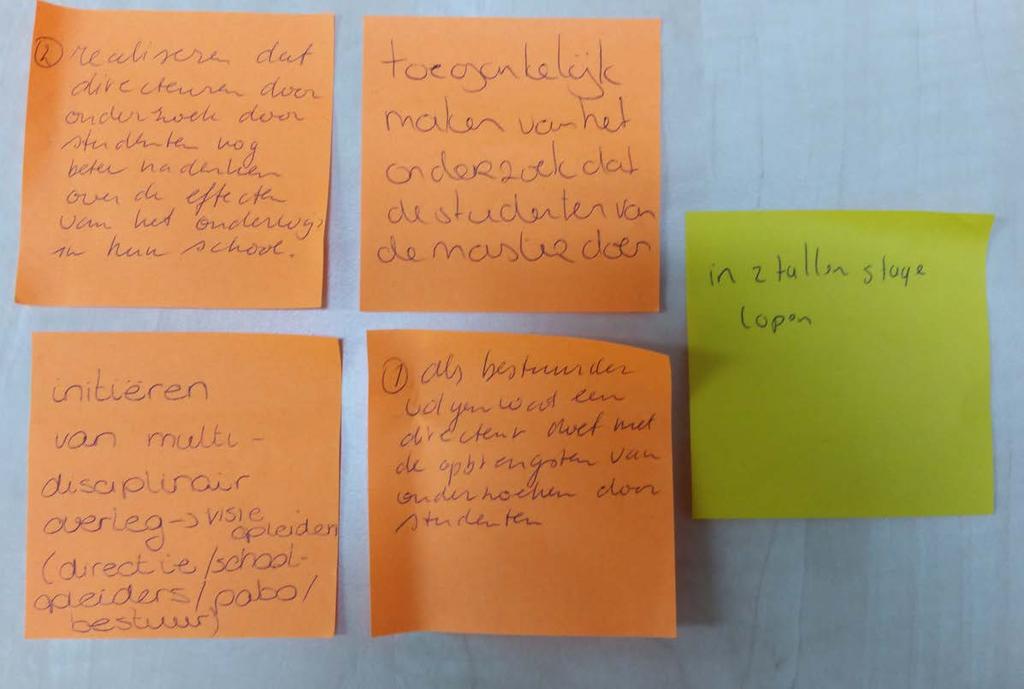 ② realiseren dat
directeuren door
onderzoek door
studenten nog
beter nadenken
over de effecten
van het onderwijs
in hun school.
toegankelijk
maken van het
onderzoek dat
de studenten van
de master doen
in 2 tallen stage
lopen
initiëren
van multi-
disciplinair
overleg → visie
opleiden
(directie/school-
opleiders/pabo/
bestuur)
① als bestuurder
volgen wat een
directeur doet met
de opbrengsten van
onderzoeken door
studenten